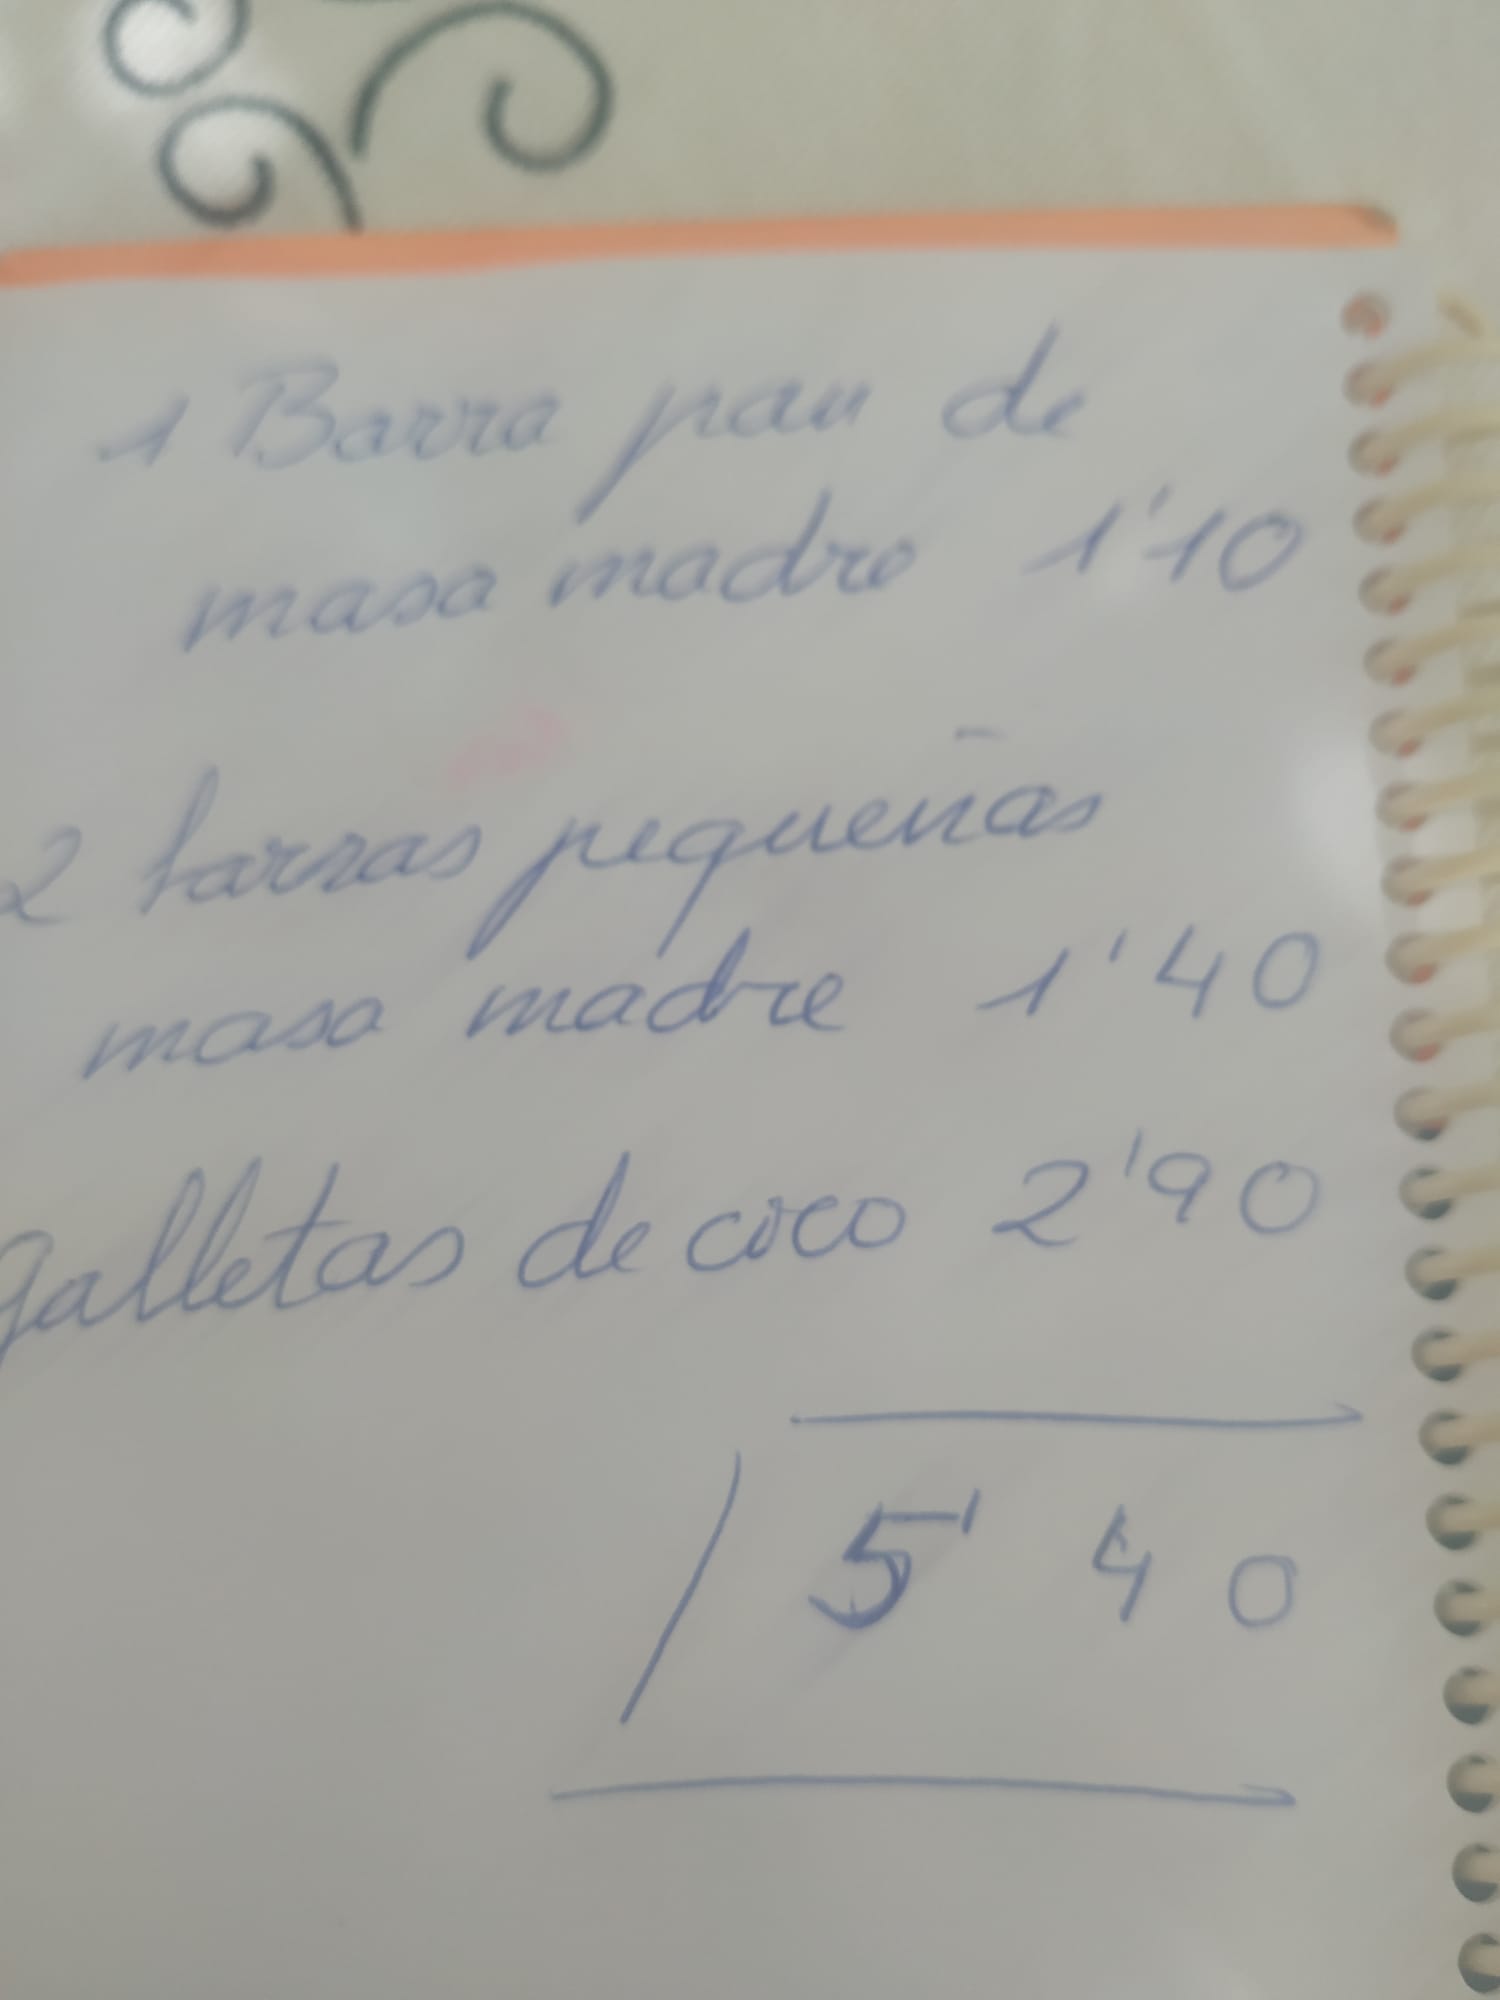 1 Barra pan de
masa madre 1'10
2 barras pequeñas
masa madre 1'40
galletas de coco 2'90
5'40